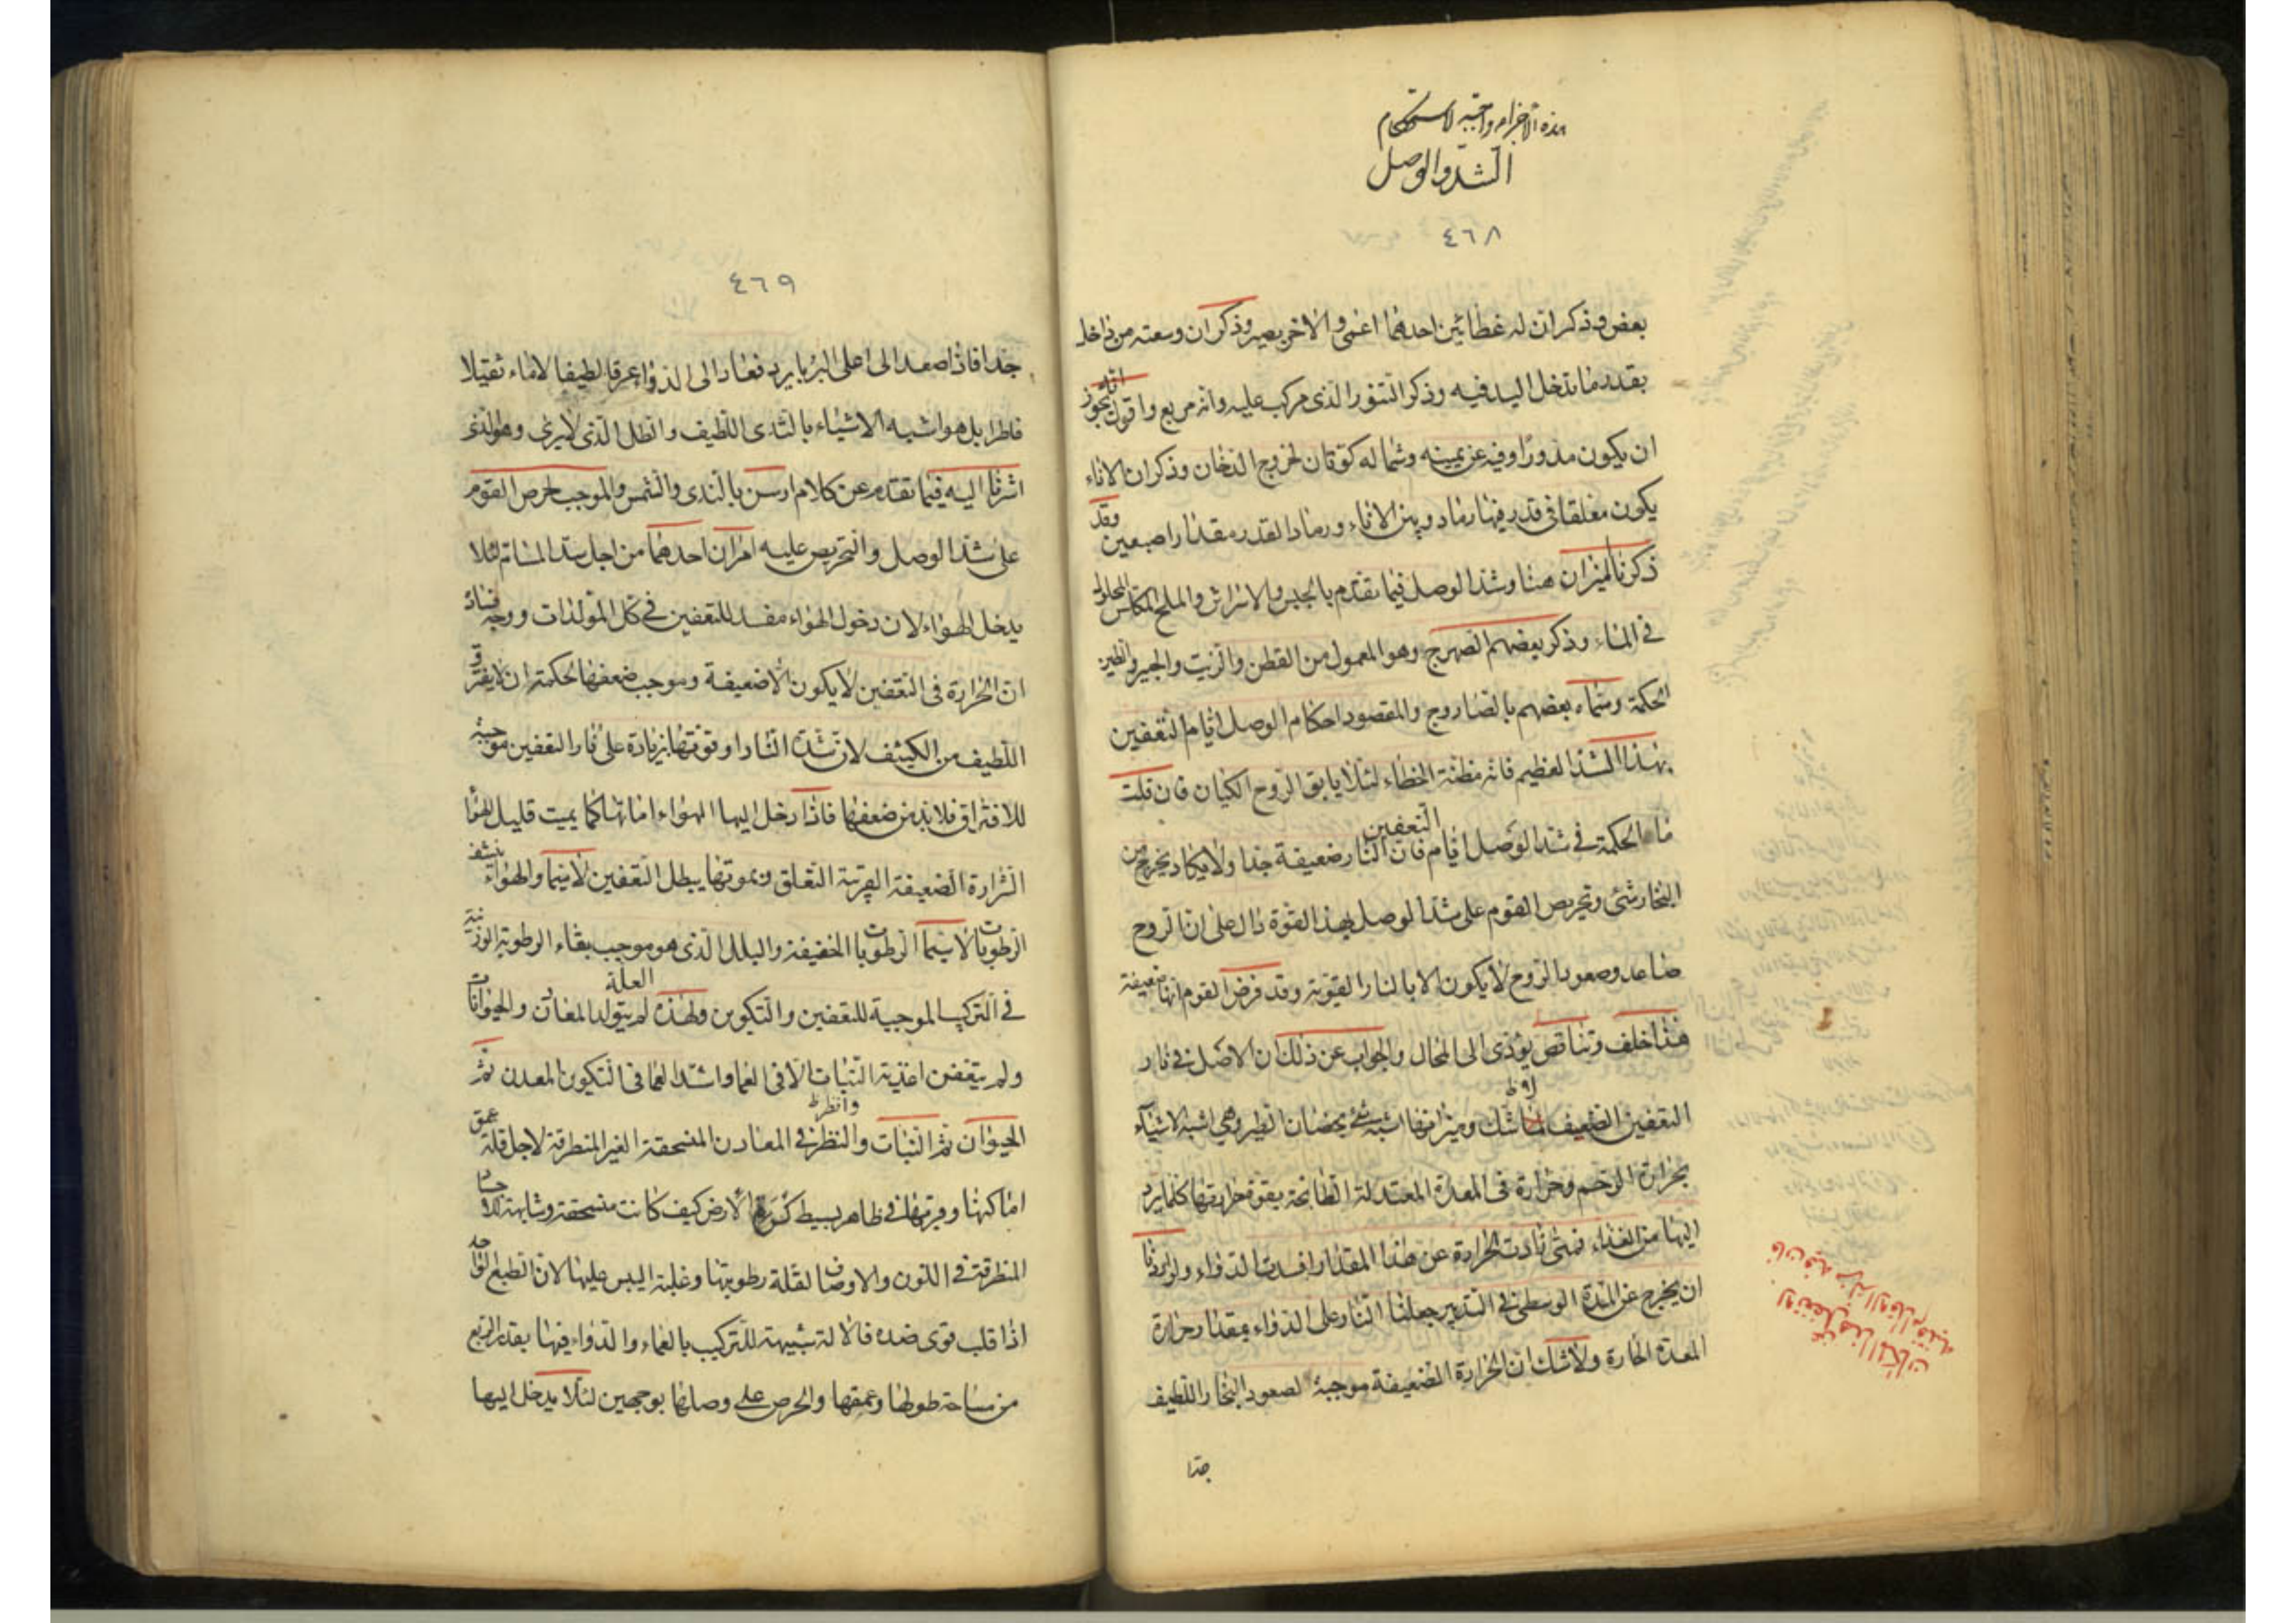 هذه الاجزاء واجبة لاستحكام
الشد والوصل
٤٦٨
بعض وذكر ان له غطائين احدهما اعمى والاخر بصير وذكر ان وسعته من داخل
بقدر ما تدخل اليد فيه وذكر التنور الذى مركب عليه وانه مربع واقول انه يجوز
ان يكون مدورا وفيه عن يمينه وشماله كوتان لخروج الدخان وذكر ان الاناء
يكون مغلقا فى قدر فيها رماد وبين الاناء ورماد القدر مقدار اصبعين وقد
ذكرنا الميزان هنا وشد الوصل فيما تقدم بالجبس والاشراش والملح المكلس المحلول
فى الماء وذكر بعضهم الصهرج وهو المعمول من القطن والزيت والجير وطين
الحكمة وسماه بعضهم بالصاروج والمقصود احكام الوصل ايام التعفين
بهذا الشد العظيم فانه مظنة الخطاء لئلا يابق الروح الكيان فان قلت
ما الحكمة فى شد الوصل ايام التعفين فان النار ضعيفة جدا ولا يكاد يخرج من
البخار شئ وتحريص القوم على شد الوصل بهذا القوة دال على ان الروح
صاعد وصعود الروح لا يكون الا بالنار القوية وقد فرض القوم انها ضعيفة
هذا خلف وتناقض يؤدى الى المحال والجواب عن ذلك ان الاصل فى نار
التعفين الضعيف لا شك وميزانها اشبه شئ بحضان الطير وهى اشبه الاشياء
بحرارة الرحم وحرارة فى المعدة المعتدلة الطابخة بقوة حرارتها كلما يرد
اليها من الغذاء فمتى زادت الحرارة عن هذا المقدار افسدت الدواء ولو اردنا
ان يخرج عن المدة الوسطى فى التدبير جعلنا النار على الدواء بمقدار حرارة
المعدة الحارة ولا شك ان الحرارة الضعيفة موجبة لصعود البخار اللطيف
جدا
٤٦٩
جدا فاذا صعد الى اعلى البربا يرد فعاد الى الدواء عرقا لطيفا لا ماء ثقيلا
قاطرا بل هو اشبه الاشياء بالندى اللطيف والطل الذى لا يرى وهو الذى
اشرنا اليه فيما تقدم عن كلام ارسن بالندى والشمس والموجب لحرص القوم
على شد الوصل والتحريص عليه امران احدهما من اجل سد المسام لئلا
يدخل الهواء لان دخول الهواء مفسد للتعفين فى كل المتولدات ووجه فساده
ان الحرارة فى التعفين لا يكون الا ضعيفة وموجب ضعفها لحكمة ان لا يفترق
اللطيف من الكثيف لان شدة النار او قوتها بزيادة على نار التعفين موجبة
للافتراق فلا بد من ضعفها فاذا دخل اليها الهواء اماتها كما يميت قليل الهواء
الشرارة الضعيفة القريبة التعلق وبموتها يبطل التعفين لا سيما والهواء ينشف
الرطوبات لا سيما الرطوبات الخفيفة والبلل الذى هو موجب بقاء الرطوبة
فى التركيب الموجبة للتعفين والتكوين ولهذه العلة لم يتولد المعادن والحيوانات
ولم يتعفن اغذية النبات الا فى الغما واشد الغما فى التكوين المعدن ثم
الحيوان ثم النبات والنظر فى المعادن المنسحقة الغير المنطرقة لاجل قلة عمق
اماكنها وقربها فى ظاهر بسيط كورة الارض كيف كانت منسحقة وشابهت
المنطرقة فى اللون والاوصاف لقلة رطوبتها وغلبة اليبس عليها لان الطبع الواحد
اذا قلب قوى ضده فالالة شبيهة للتركيب بالغماء والدواء فيها بقدر الربع
من مساحة طولها وعمقها والحرص على وصلها بوجهين لئلا يدخل اليها